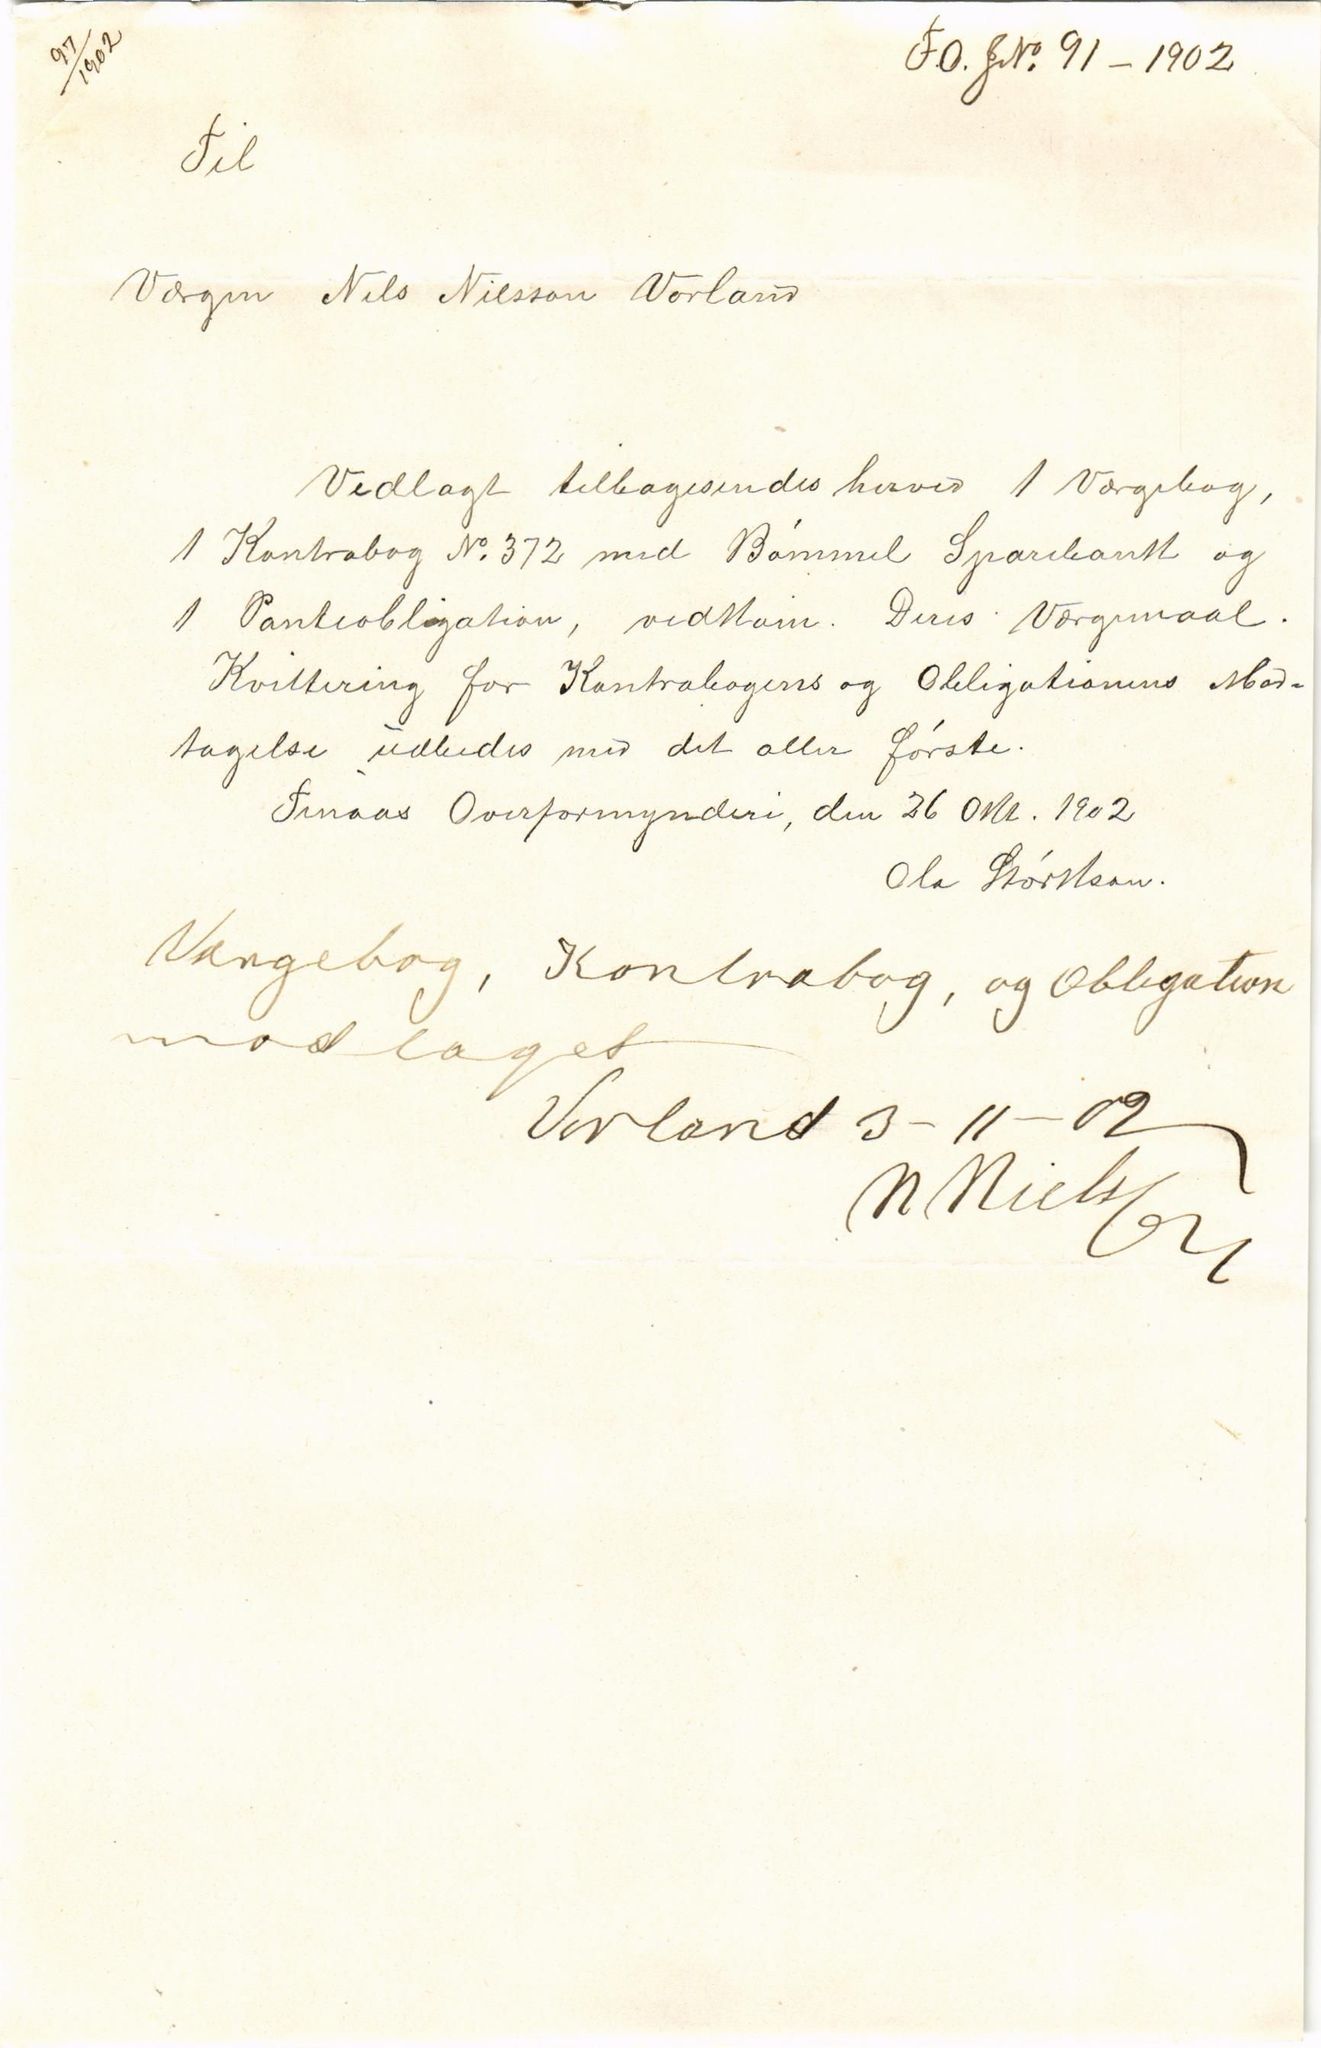 97/1902
F.O. J.No. 91 – 1902
Til
Værgen Nils Nilsson Vorland
Vedlagt tilbagesendes herved 1 Værgebog,
1 Kontrabog No. 372 med Bømmel Sparebank og
1 Panteobligation, vedkom. Deres Værgemaal.
Kvittering for Kontrabogens og Obligationens Mod-
tagelse udbedes med det aller første.
Finaas Overformynderi, den 26 Okt. 1902
Ola Størkson.
Værgebog, Kontrabog, og Obligation
modtaget
Vorland 3 – 11 – 02
N Nielsen